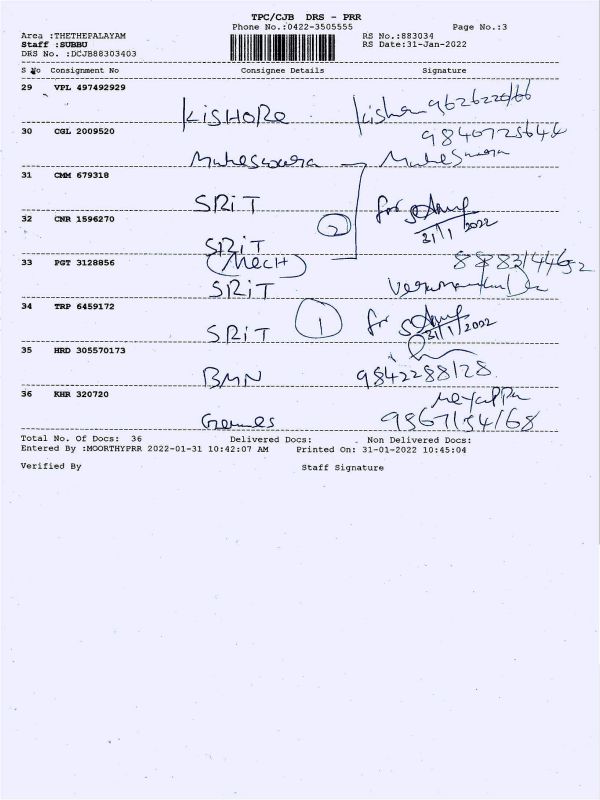 TPC/CJB DRS - PRR
Phone No.:0422-3505555 Page No.:3
Area :THETHEPALAYAM RS No.:883034
Staff :SUBBU RS Date:31-Jan-2022
DRS No. :DCJB88303403
S No Consignment No Consignee Details Signature
29 VPL 497492929
KiSHORe
30 CGL 2009520 9840725644
Maheswara
31 CMM 679318
SRiT for
31/1/2022
32 CNR 1596270 2
SRiT
(Mech)
33 PGT 3128856
SRiT
34 TRP 6459172
SRiT 1 for
31/1/2022
35 HRD 305570173
BMN 9842288128
36 KHR 320720
9867134168
Total No. Of Docs: 36 Delivered Docs: . Non Delivered Docs:
Entered By :MOORTHYPRR 2022-01-31 10:42:07 AM Printed On: 31-01-2022 10:45:04
Verified By Staff Signature